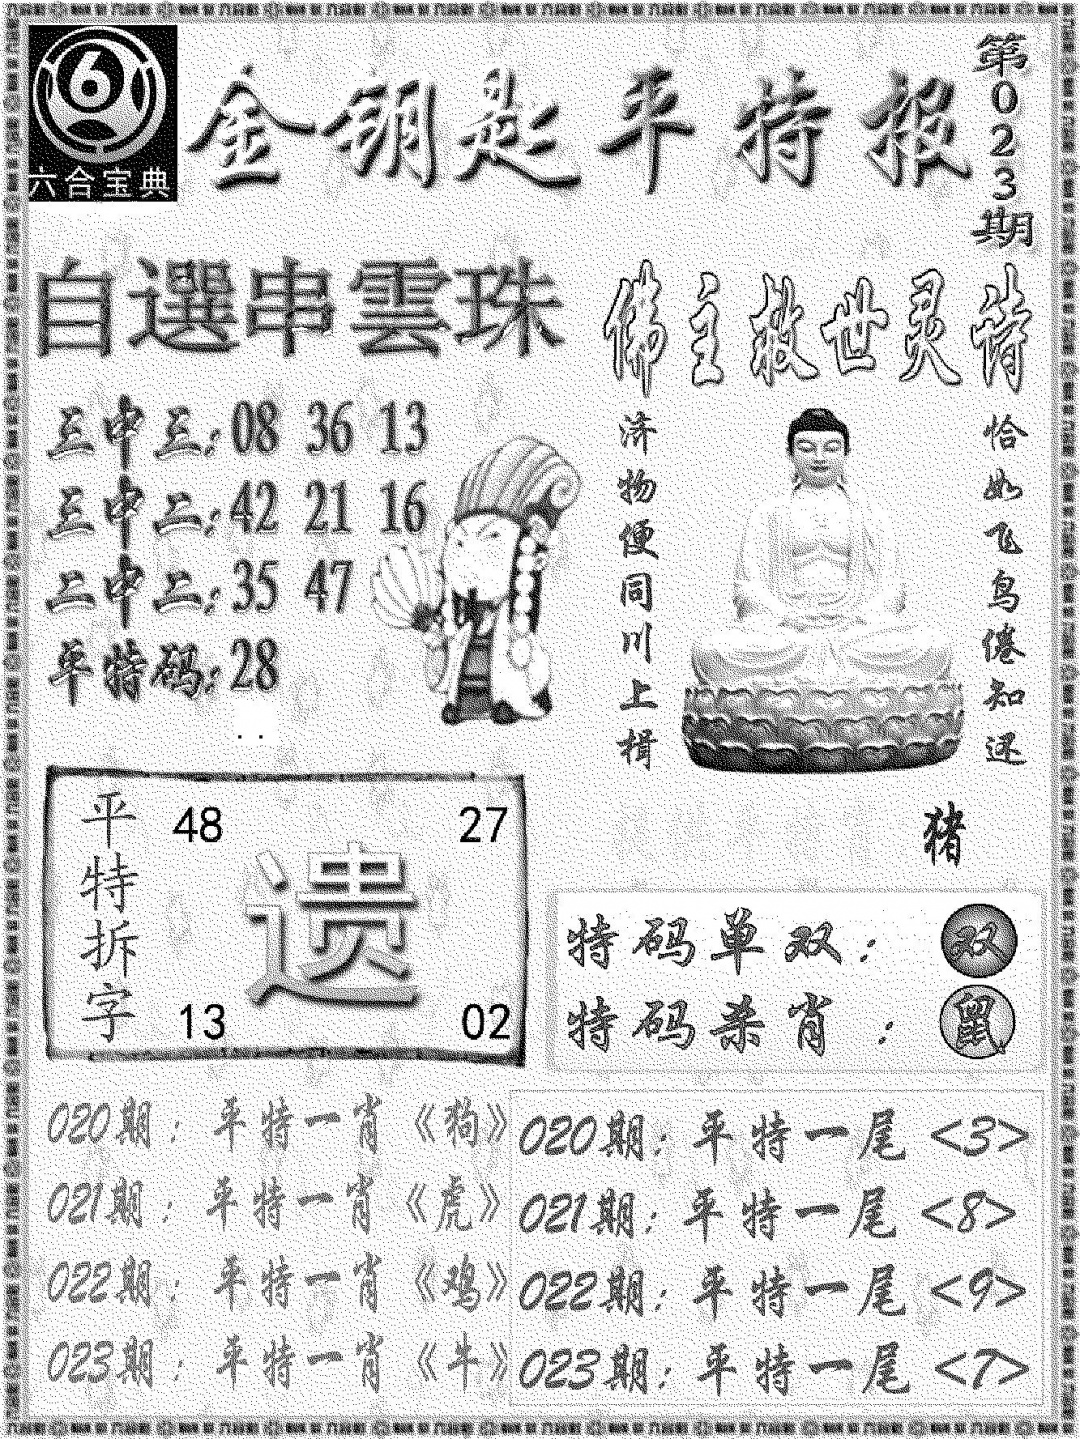 6
六合宝典
金钥匙平特报
第023期
自選串雲珠
三中三:08 36 13
三中二:42 21 16
二中二:35 47
平特码:28
. .
佛主救世灵诗
恰如飞鸟倦知还
济物便同川上楫
猪
平特拆字
48
27
遗
13
02
特码单双:双
特码杀肖:鼠
020期:平特一肖《狗》
021期:平特一肖《虎》
022期:平特一肖《鸡》
023期:平特一肖《牛》
020期:平特一尾<3>
021期:平特一尾<8>
022期:平特一尾<9>
023期:平特一尾<7>